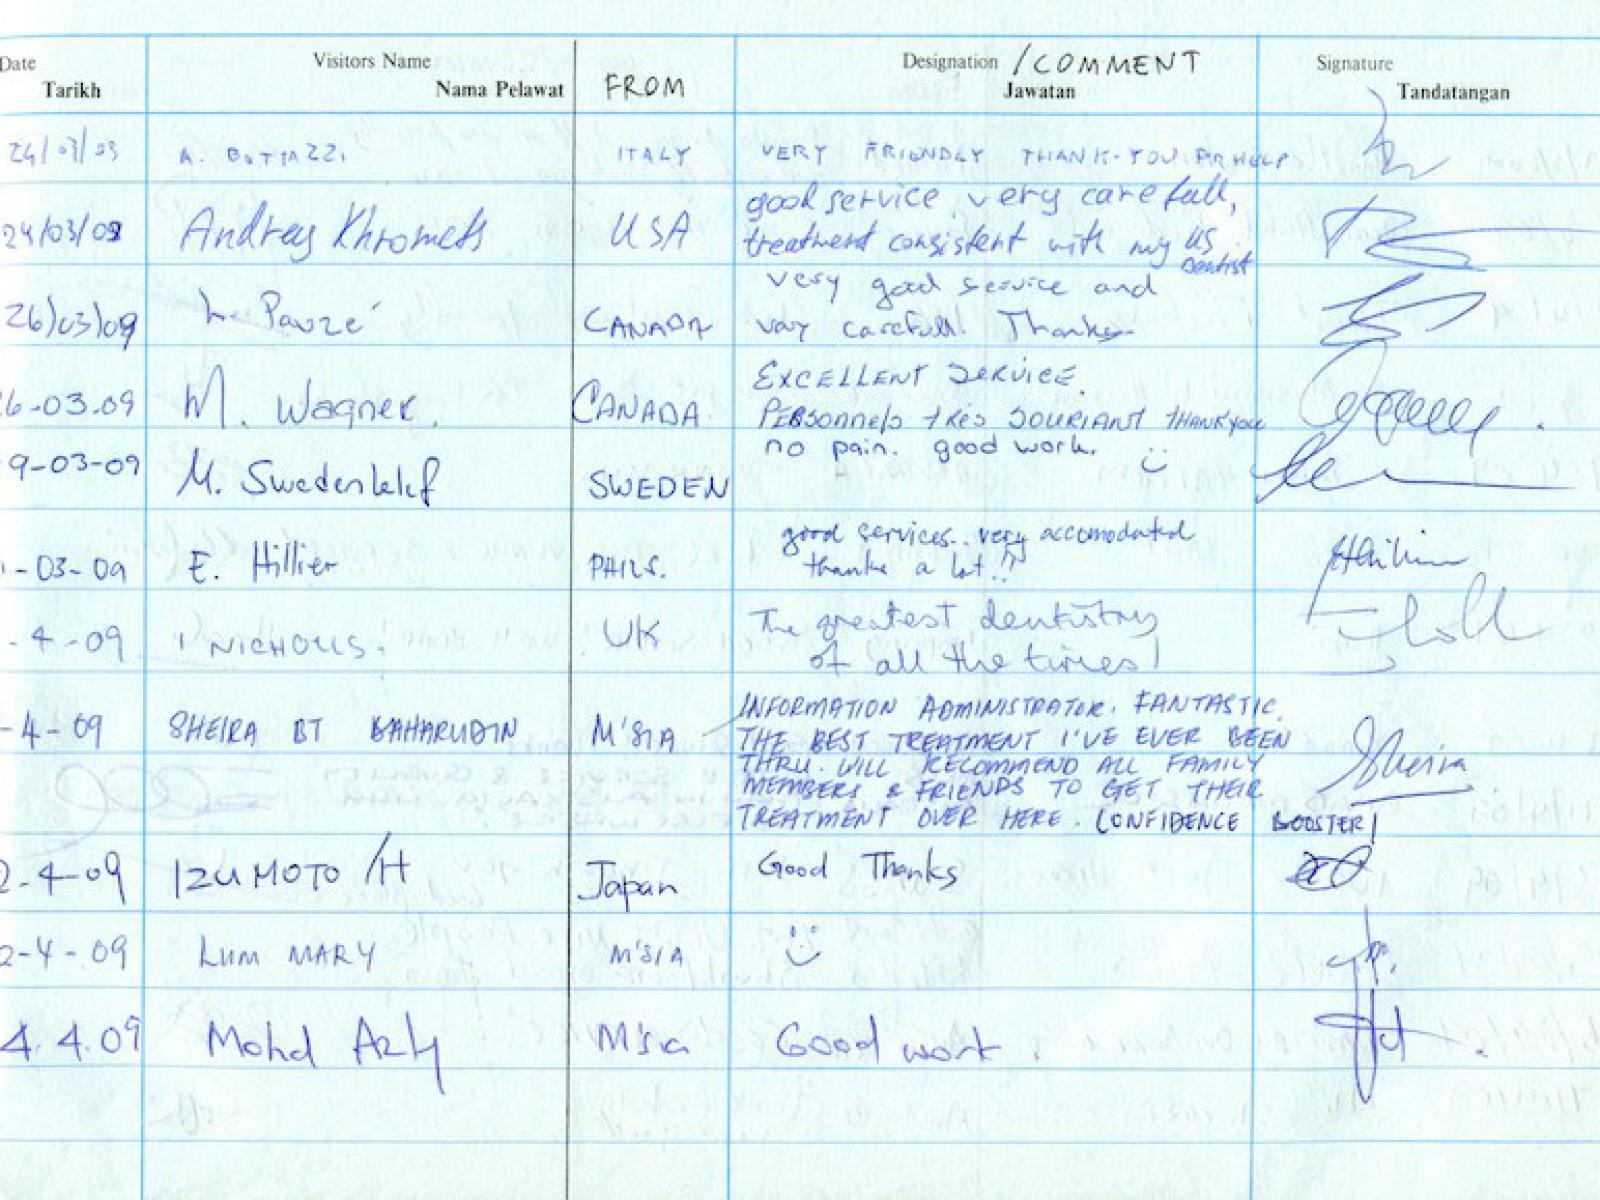 Date Visitors Name Designation / COMMENT Signature
Tarikh Nama Pelawat FROM Jawatan Tandatangan
24/03/09 A. ITALY VERY FRIENDLY THANK-YOU FOR HELP
good service very carefull,
24/03/09 Andrey Khromets USA treatment consistent with my US
dentist
very good service and
26/03/09 L. Pauzé CANADA very carefull. Thanks
EXCELLENT SERVICE.
6-03.09 M. Wagner. CANADA. PERSonnels tres SOURIANT THANK you
no pain. good work. :)
9-03-09 M. SWEDEN
good services.. very accomodated
-03-09 E. Hillier PHILS. thanks a lot!!
The greatest dentistry
-4-09 I NICHOLLS. UK of all the times!
INFORMATION ADMINISTRATOR. FANTASTIC.
-4-09 SHEIRA BT BAHARUDIN M'SIA THE BEST TREATMENT I'VE EVER BEEN Sheira
THRU. WILL RECOMMEND ALL FAMILY
MEMBERS & FRIENDS TO GET THEIR
TREATMENT OVER HERE. CONFIDENCE BOOSTER!
2-4-09 IZUMOTO /H Japan Good Thanks
2-4-09 LUM MARY M'SIA :)
4.4.09 Mohd Azly M'sia Good work.